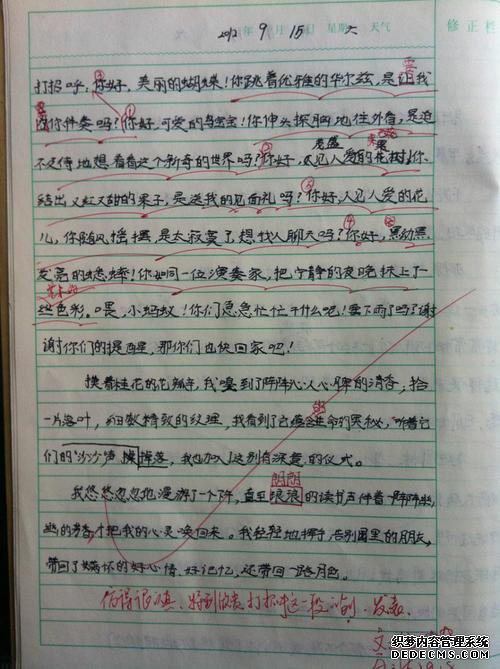 2012年9月15日 星期六 天气 修正栏
需
打招呼:你好,美丽的蝴蝶!你跳着优雅的华尔兹,是让我
你伴奏吗?你好,可爱的鸟宝宝!你伸头探脑地往外看,是迫
不及待地想看看这个新奇的世界吗?你好,人见人爱的花树!你
结出又红又甜的果子,是送我的见面礼吗?你好,人见人爱的花
儿,你随风摇摆是太寂寞了想找人聊天吗?你好,黑黝黑
发亮的蟋蟀!你如同一位演奏家,把宁静的夜晚抹上了一
些色彩。喂,小蚂蚁!你们急急忙忙干什么吧!要下雨了吗?谢
谢你们的提醒,那你们也快回家吧!
摸着桂花的花瓣,我嗅到了阵阵沁人心脾的清香;拾
一片落叶,细数精致的纹理,我看到了它蕴含生命的奥秘,听着它
们的沙沙声 掉落,我也加入了这别有深意的仪式。
朗朗
我悠悠忽忽地漫游了一个下午,直至琅琅的读书声伴着一阵阵幽
幽的芳香才把我的心灵唤回来。我轻轻地挥手,告别园里的朋友,
带回了满怀的好心情、好记忆,还带回一路月色。
打招呼这一段
织梦内容管理系统